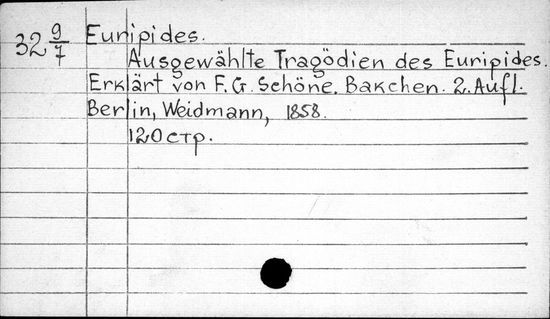 32 9/7 Euripides.
Ausgewählte Tragödien des Euripides.
Erklärt von F. G. Schöne. Bakchen. 2. Aufl.
Berlin, Weidmann, 1858.
120 стр.